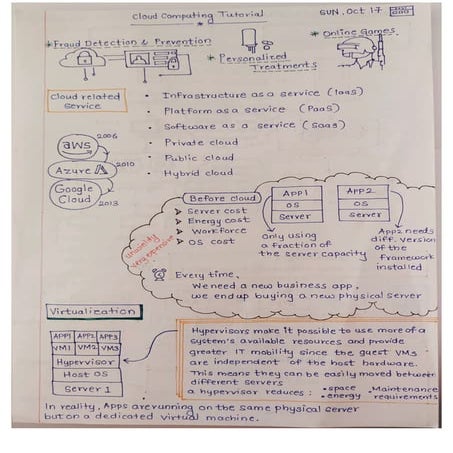 Cloud Computing Tutorial
SUN, Oct 17
* Fraud Detection & Prevention
* Personalized
Treatments
* Online Games
Cloud related
service
• Infrastructure as a service (IaaS)
• Platform as a service (PaaS)
• Software as a service (SaaS)
• Private cloud
• Public cloud
• Hybrid cloud
aws
2006
Azure
2010
Google
Cloud
2013
Before cloud
➤ Server cost
➤ Energy cost
➤ Workforce
➤ OS cost
very expensive
App1
OS
Server
App2
OS
Server
Only using
a fraction of
the server capacity
App2 needs
diff. version
of the
framework
installed
Every time,
We need a new business app,
we end up buying a new physical server
Virtualization
APP1 APP2 APP3
VM1 VM2 VM3
Hypervisor
Host OS
Server 1
Hypervisors make it possible to use more of a
system's available resources and provide
greater IT mobility since the guest VMs
are independent of the host hardware.
This means they can be easily moved between
different servers
a hypervisor reduces: • space • Maintenance
• energy requirements
In reality, Apps are running on the same physical server
but on a dedicated virtual machine.